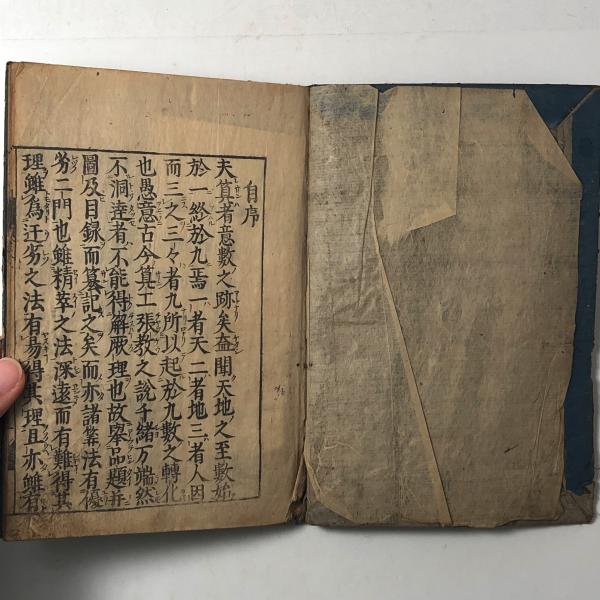 自序
夫算者意數之跡矣盍聞天地之至數始
於一終於九焉一者天二者地三者人因
而三之三々者九所以起於九數之轉化
也愚意古今算工張教之說千緒万端然
不洞達者不能得解厥理也故舉品題并
圖及目録而纂記之矣而亦諸業法有優
劣二門也雖精萃之法深遠而有難得其
理雖為迂劣之法有易得其理且亦雖有